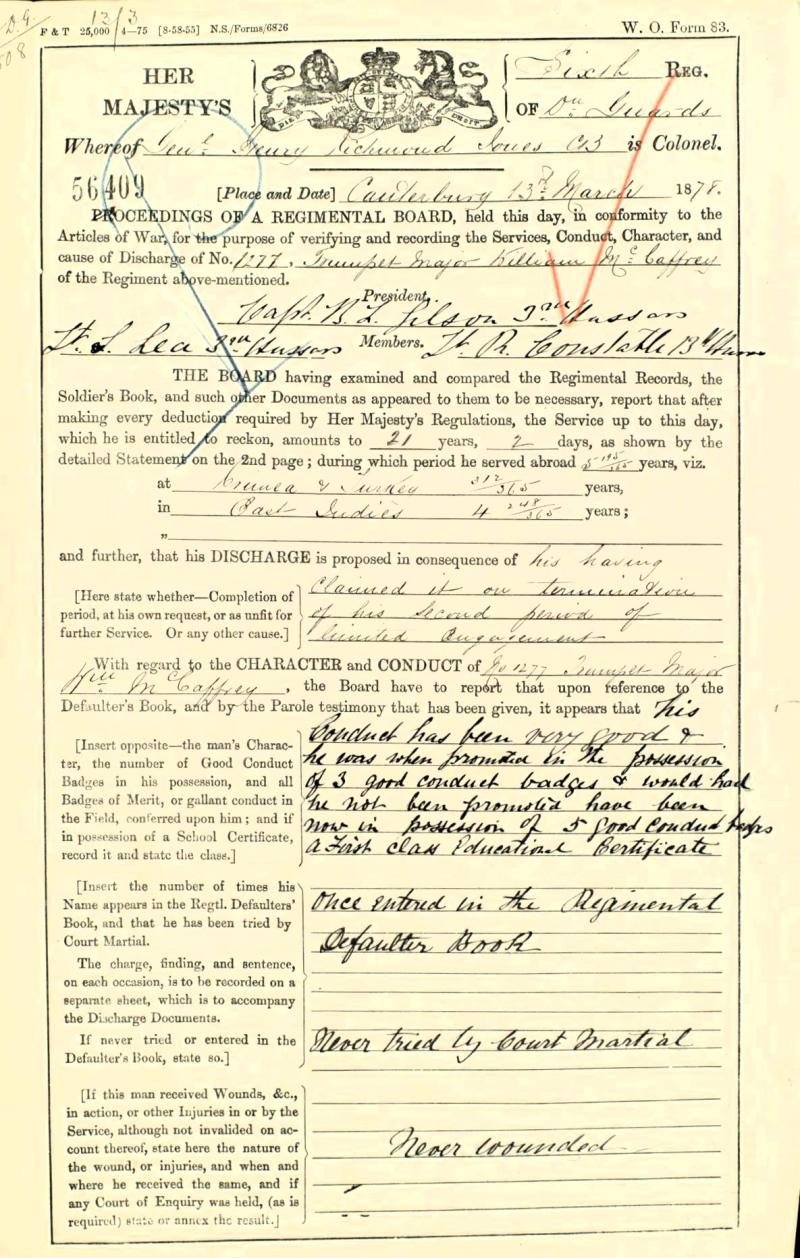 D.G
508
13/3
F & T 25,000 4—75 [8-58-55] N.S./Forms/6826 W. O. Form 83.
HER MAJESTY'S
Sixth REG.
OF Dn Guards
Whereof Genl. Henry Richmond Jones CB is Colonel.
56409
[Place and Date] Canterbury 13th March 1878.
PROCEEDINGS OF A REGIMENTAL BOARD, held this day, in conformity to the
Articles of War, for the purpose of verifying and recording the Services, Conduct, Character, and
cause of Discharge of No. 1277. Trumpet Major William McCaffrey
of the Regiment above-mentioned.
President.
Capt. B. L. 3rd Hussars
Lt. S. Lea 3rd Hussars Members. Lt. R. Constable 13th
THE BOARD having examined and compared the Regimental Records, the
Soldier's Book, and such other Documents as appeared to them to be necessary, report that after
making every deduction required by Her Majesty's Regulations, the Service up to this day,
which he is entitled to reckon, amounts to 21 years, 2 days, as shown by the
detailed Statement on the 2nd page; during which period he served abroad 5 195/365 years, viz.
at Crimea & Turkey 312/365 years,
in East Indies 4 248/365 years;
„
and further, that his DISCHARGE is proposed in consequence of his having
[Here state whether—Completion of period, at his own request, or as unfit for further Service. Or any other cause.]
claimed it on termination
of his second period of
limited engagement
With regard to the CHARACTER and CONDUCT of No 1277 Trumpet Major
Wm McCaffrey, the Board have to report that upon reference to the
Defaulter's Book, and by the Parole testimony that has been given, it appears that his
[Insert opposite—the man's Charac-
ter, the number of Good Conduct
Badges in his possession, and all
Badges of Merit, or gallant conduct in
the Field, conferred upon him; and if
in possession of a School Certificate,
record it and state the class.]
Conduct has been very good &
he was when promoted in the possession
of 3 good conduct badges & would had
he not been promoted have been
now in possession of 5 good conduct badges
A First Class Educational Certificate
[Insert the number of times his
Name appears in the Regtl. Defaulters'
Book, and that he has been tried by
Court Martial.
The charge, finding, and sentence,
on each occasion, is to be recorded on a
separate sheet, which is to accompany
the Discharge Documents.
If never tried or entered in the
Defaulter's Book, state so.]
Once entered in the Regimental
Defaulter Book
Never tried by Court Martial
[If this man received Wounds, &c.,
in action, or other Injuries in or by the
Service, although not invalided on ac-
count thereof, state here the nature of
the wound, or injuries, and when and
where he received the same, and if
any Court of Enquiry was held, (as is
required) state or annex the result.]
Never wounded